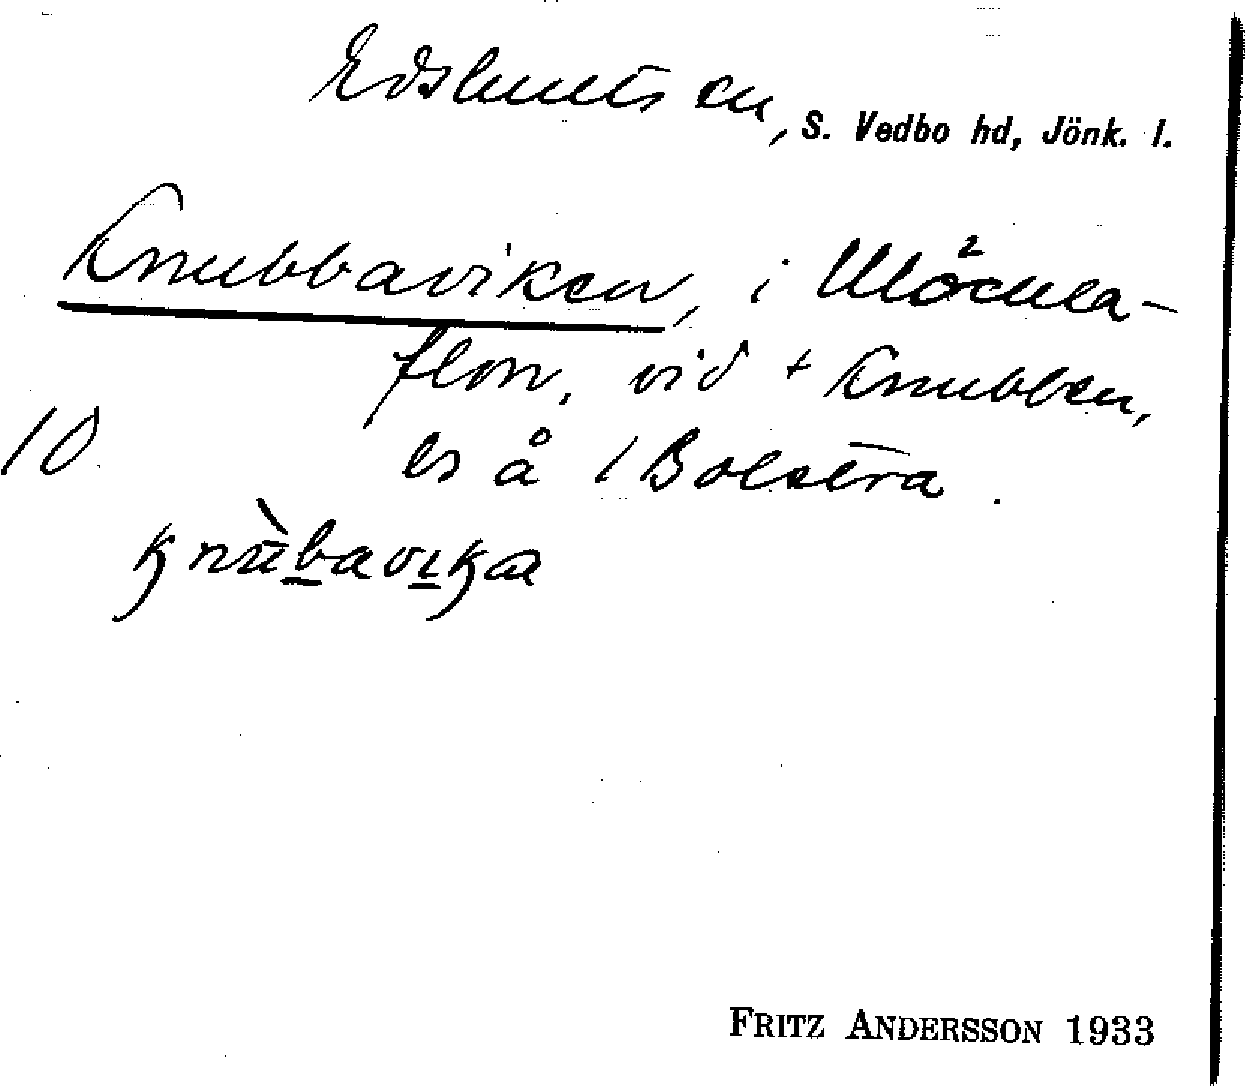 Edshults sn, S. Vedbo hd, Jönk. l.
Knubbaviken, i Möckla-
flon, vid + Knubben,
10 es å / Bolstra.
knùbavika
FRITZ ANDERSSON 1933